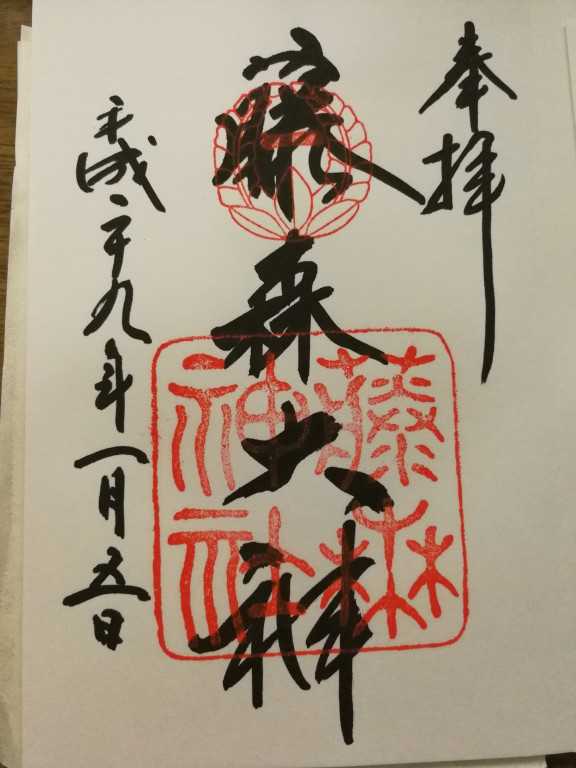 奉拝
藤森大神
藤森
神社
平成二十九年一月五日